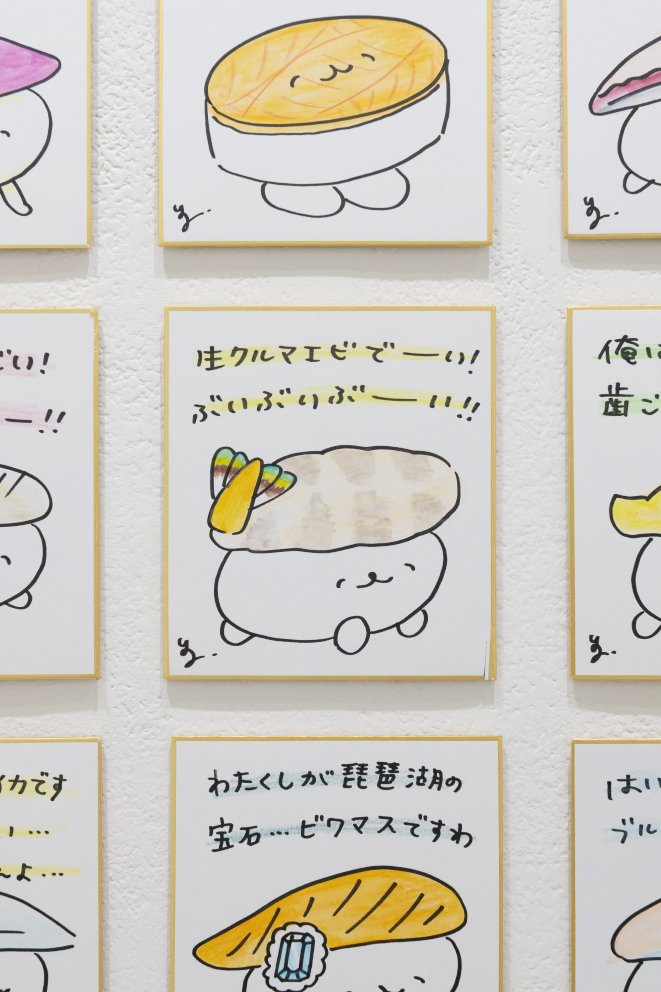 い!
ー!!
生クルマエビでーい!
ぶいぶいぶーい!!
俺は
歯ご
イカです
い…
んよ…
わたくしが琵琶湖の
宝石…ビワマスですわ
はい
ブル